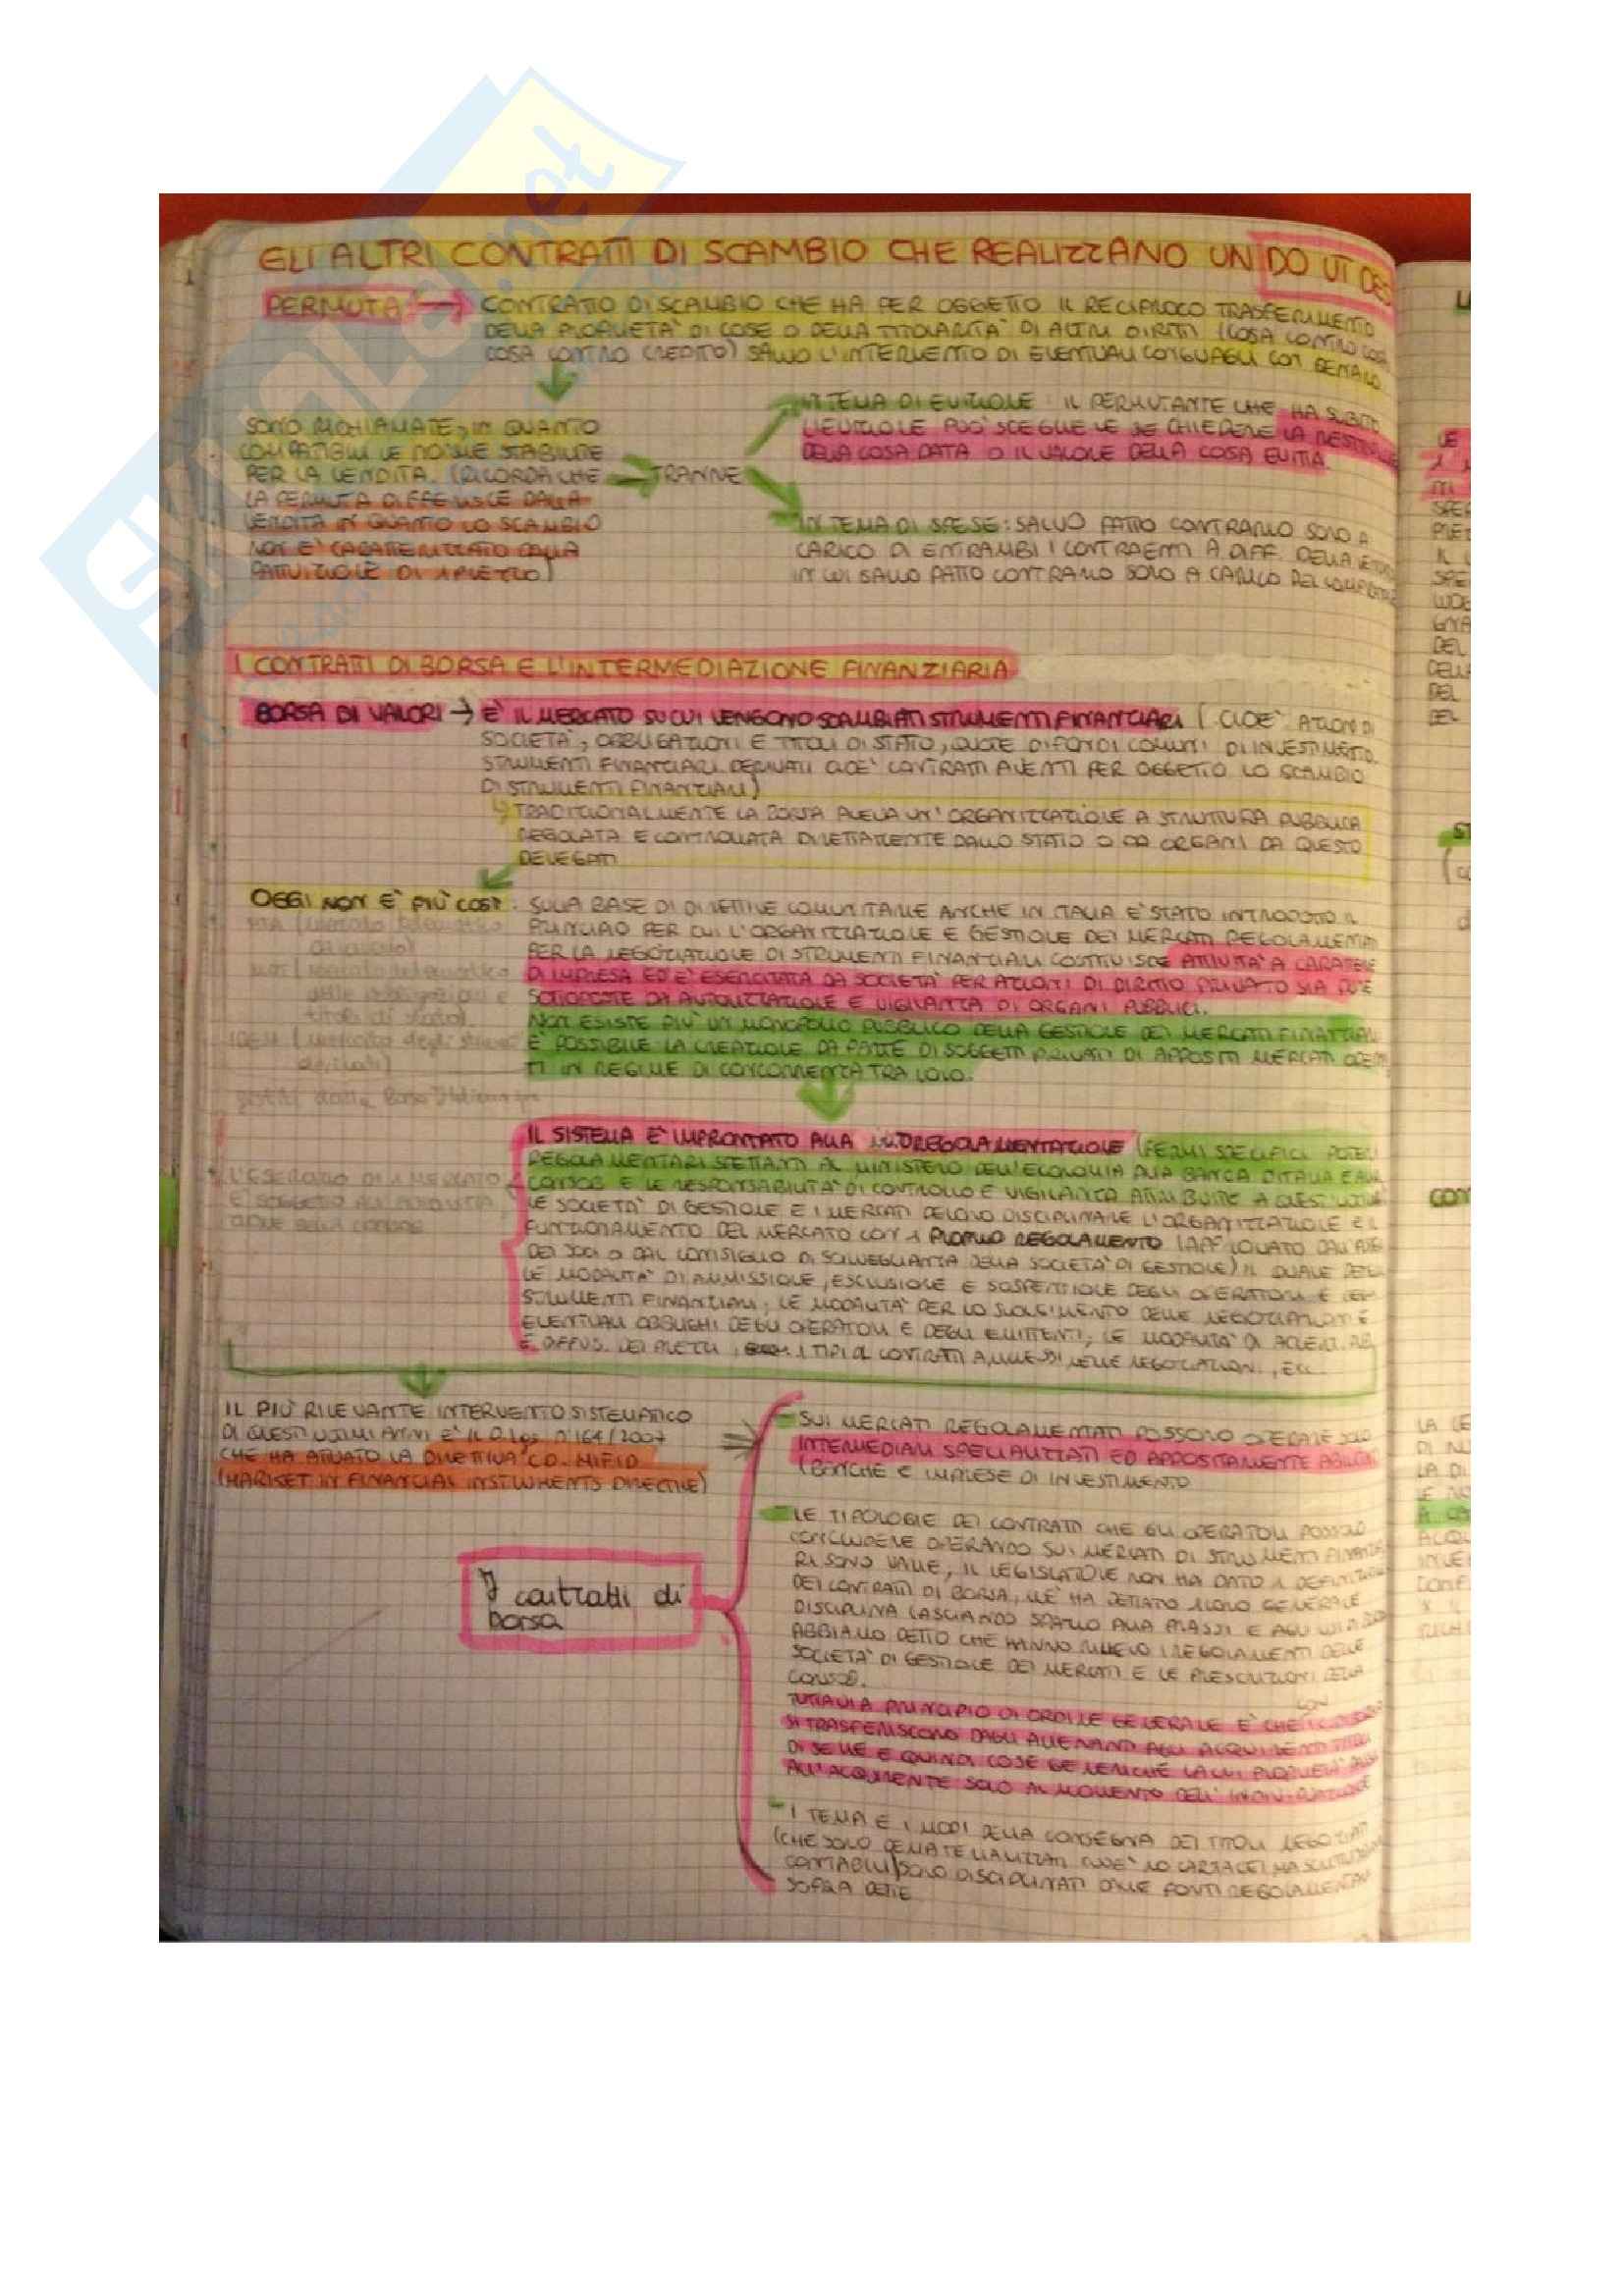 GLI ALTRI CONTRATTI DI SCAMBIO CHE REALIZZANO UN DO UT DES
PERMUTA → CONTRATTO DI SCAMBIO CHE HA PER OGGETTO IL RECIPROCO TRASFERIMENTO
DELLA PROPRIETA' DI COSE O DELLA TITOLARITA' DI ALTRI DIRITTI (COSA CONTRO COSA
COSA CONTRO CREDITO) SALVO L'INTERVENTO DI EVENTUALI CONGUAGLI CON DENARO
SONO RICHIAMATE, IN QUANTO
COMPATIBILI LE NORME STABILITE
PER LA VENDITA. (RICORDA CHE
LA PERMUTA DIFFERISCE DALLA
VENDITA IN QUANTO LO SCAMBIO
NON E' CARATTERIZZATO DALLA
PATTUIZIONE DI 1 PREZZO)
TRANNE
IN TEMA DI EVIZIONE: IL PERMUTANTE CHE HA SUBITO
L'EVIZIONE PUO' SCEGLIERE SE CHIEDERE LA
DELLA COSA DATA O IL VALORE DELLA COSA EVITTA.
IN TEMA DI SPESE: SALVO PATTO CONTRARIO SONO A
CARICO DI ENTRAMBI I CONTRAENTI A DIFF. DELLA
IN CUI SALVO PATTO CONTRARIO SONO A CARICO DEL
I CONTRATTI DI BORSA E L'INTERMEDIAZIONE FINANZIARIA
BORSA DI VALORI → E' IL MERCATO SU CUI VENGONO SCAMBIATI STRUMENTI FINANZIARI (CIOE' AZIONI DI
SOCIETA', OBBLIGAZIONI E TITOLI DI STATO, QUOTE DI FONDI COMUNI DI INVESTIMETO.
STRUMENTI FINANZIARI DERIVATI CIOE' CONTRATTI AVENTI PER OGGETTO LO SCAMBIO
DI STRUMENTI FINANZIARI)
TRADIZIONALMENTE LA BORSA AVEVA UN' ORGANIZZAZIONE A STRUTTURA PUBBLICA
REGOLATA E CONTROLLATA DIRETTAMENTE DALLO STATO O DA ORGANI DA QUESTO
DELEGATI
OGGI NON E' PIU' COSI': SULLA BASE DI DIRETTIVE COMUNITARIE ANCHE IN ITALIA E' STATO INTRODOTTO IL
PRINCIPIO PER CUI L'ORGANIZZAZIONE E GESTIONE DEI MERCATI REGOLAMENTATI
PER LA NEGOZIAZIONE DI STRUMENTI FINANZIARI COSTITUISCE ATTIVITA' A CARATTERE
DI IMPRESA ED E' ESERCITATA DA SOCIETA' PER AZIONI DI DIRITTO PRIVATO SIA PURE
SOTTOPOSTE DA AUTORIZZAZIONE E VIGILANZA DI ORGANI PUBBLICI.
NON ESISTE PIU' UN MONOPOLIO PUBBLICO DELLA GESTIONE DEI MERCATI FINANZIARI
E' POSSIBILE LA CREAZIONE DA PARTE DI SOGGETTI PRIVATI DI APPOSITI MERCATI
TI IN REGIME DI CONCORRENZA TRA LORO.
MTA (mercato telematico
azionario)
MOT (mercato telematico
delle obbligazioni e
titoli di stato)
IDEM (mercato degli
derivati)
gestiti dalla Borsa Italiana spa
IL SISTEMA E' IMPRONTATO ALLA REGOLAMENTAZIONE (FERMI SPECIFICI POTERI
REGOLAMENTARI SPETTANTI AL MINISTERO DELL'ECONOMIA ALLA BANCA D'ITALIA E ALLA
CONSOB E LE RESPONSABILITA' DI CONTROLLO E VIGILANZA ATTRIBUITE A
LE SOCIETA' DI GESTIONE E I MERCATI DEVONO DISCIPLINARE L'ORGANIZZAZIONE E IL
FUNZIONAMENTO DEL MERCATO CON 1 PROPRIO REGOLAMENTO (APPROVATO DALL'ASS.
DEI SOCI O DAL CONSIGLIO DI SORVEGLIANZA DELLA SOCIETA' DI GESTIONE) IL QUALE
LE MODALITA' DI AMMISSIONE, ESCLUSIONE E SOSPENSIONE DEGLI OPERATORI E DEGLI
STRUMENTI FINANZIARI; LE MODALITA' PER LO SVOLGIMENTO DELLE NEGOZIAZIONI E
EVENTUALI OBBLIGHI DEGLI OPERATORI E DEGLI EMITTENTI; LE MODALITA' DI
E DIFFUS. DEI PREZZI, I TIPI DI CONTRATTI AMMESSI NELLE NEGOZIAZIONI, ECC.
L'ESERCIZIO DI 1 MERCATO
E' SOGGETTO ALL'AUTORIZZA
ZIONE DELLA CONSOB
IL PIU' RILEVANTE INTERVENTO SISTEMATICO
DI QUESTI ULTIMI ANNI E' IL D.Lgs. N°164/2007
CHE HA ATTUATO LA DIRETTIVA CD. MIFID
(MARKET IN FINANCIAL INSTRUMENTS DIRECTIVE)
I contratti di
borsa
- SUI MERCATI REGOLAMENTATI POSSONO OPERARE SOLO
INTERMEDIARI SPECIALIZZATI ED APPOSITAMENTE ABILITATI
(BANCHE E IMPRESE DI INVESTIMENTO
- LE TIPOLOGIE DEI CONTRATTI CHE GLI OPERATORI POSSONO
CONCLUDERE OPERANDO SUI MERCATI DI STRUMENTI FINANZIA
RI SONO VARIE, IL LEGISLATORE NON HA DATO 1 DEFINIZIONE
DEI CONTRATTI DI BORSA, NE' HA DETTATO 1 LORO GENERALE
DISCIPLINA LASCIANDO SPAZIO ALLA PRASSI E AGLI USI
ABBIAMO DETTO CHE HANNO RILIEVO I REGOLAMENTI DELLE
SOCIETA' DI GESTIONE DEI MERCATI E LE PRESCRIZIONI DELLA
CONSOB.
TUTTAVIA PRINCIPIO DI ORDINE GENERALE E' CHE CON
SI TRASFERISCONO DAGLI ALIENANTI AGLI ACQUIRENTI TITOLI
DI SERIE E QUINDI COSE GENERICHE LA CUI PROPRIETA' PASSA
ALL'ACQUIRENTE SOLO AL MOMENTO DELL' INDIVIDUAZIONE
- I TEMPI E I MODI DELLA CONSEGNA DEI TITOLI NEGOZIATI
(CHE SONO DEMATERIALIZZATI CIOE' NO CARTACEI MA SCRITTURE
CONTABILI) SONO DISCIPLINATI DALLE FONTI REGOLAMENTARI
SOPRA DETTE